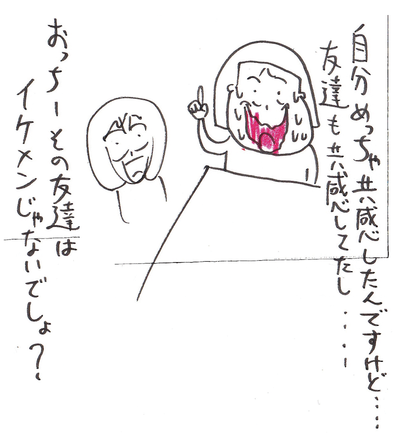 自分めっちゃ共感したんですけど‥‥
友達も共感してたし‥‥
おっちーその友達は
イケメンじゃないでしょ?